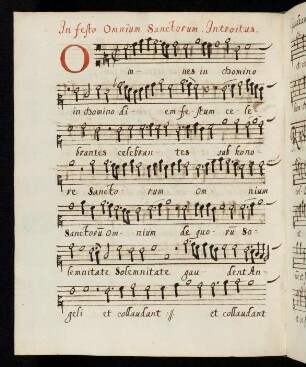 In festo Omnium Sanctorum. Introitus.
O
m nes in Domino
in Domino di em fe stum ce le
brantes celebran tes sub hono
re Sancto rum om nium
Sanctorũ om nium de quo rũ So
lemnitate Solemnitate gau dent An
geli et collaudant :ǁ: et collaudant